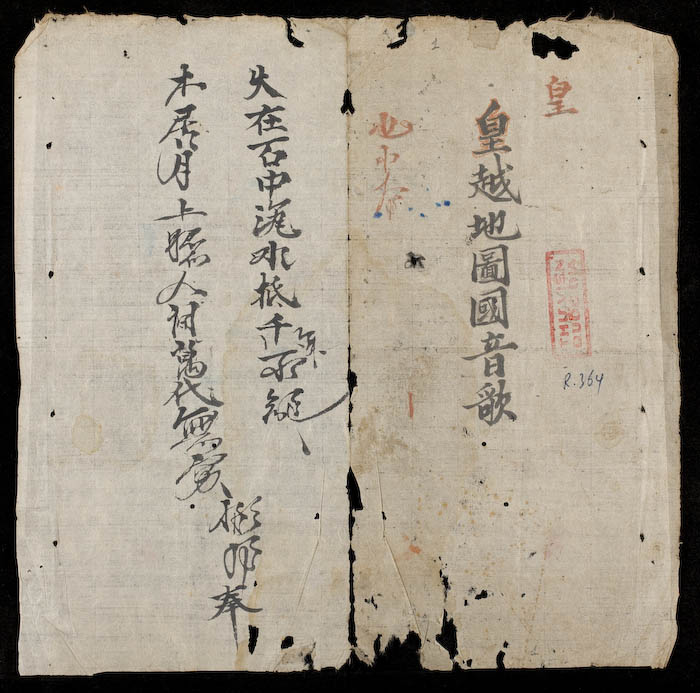 皇
皇越地圖國音歌
R.364
火在石中泥水抵千年不絕
木居月上照人間萬代無窮
奉